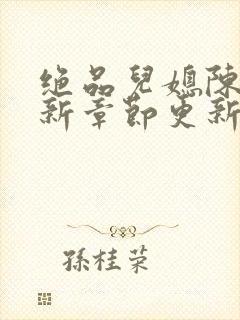 绝品兒媳陳
新章節更新
孫桂榮